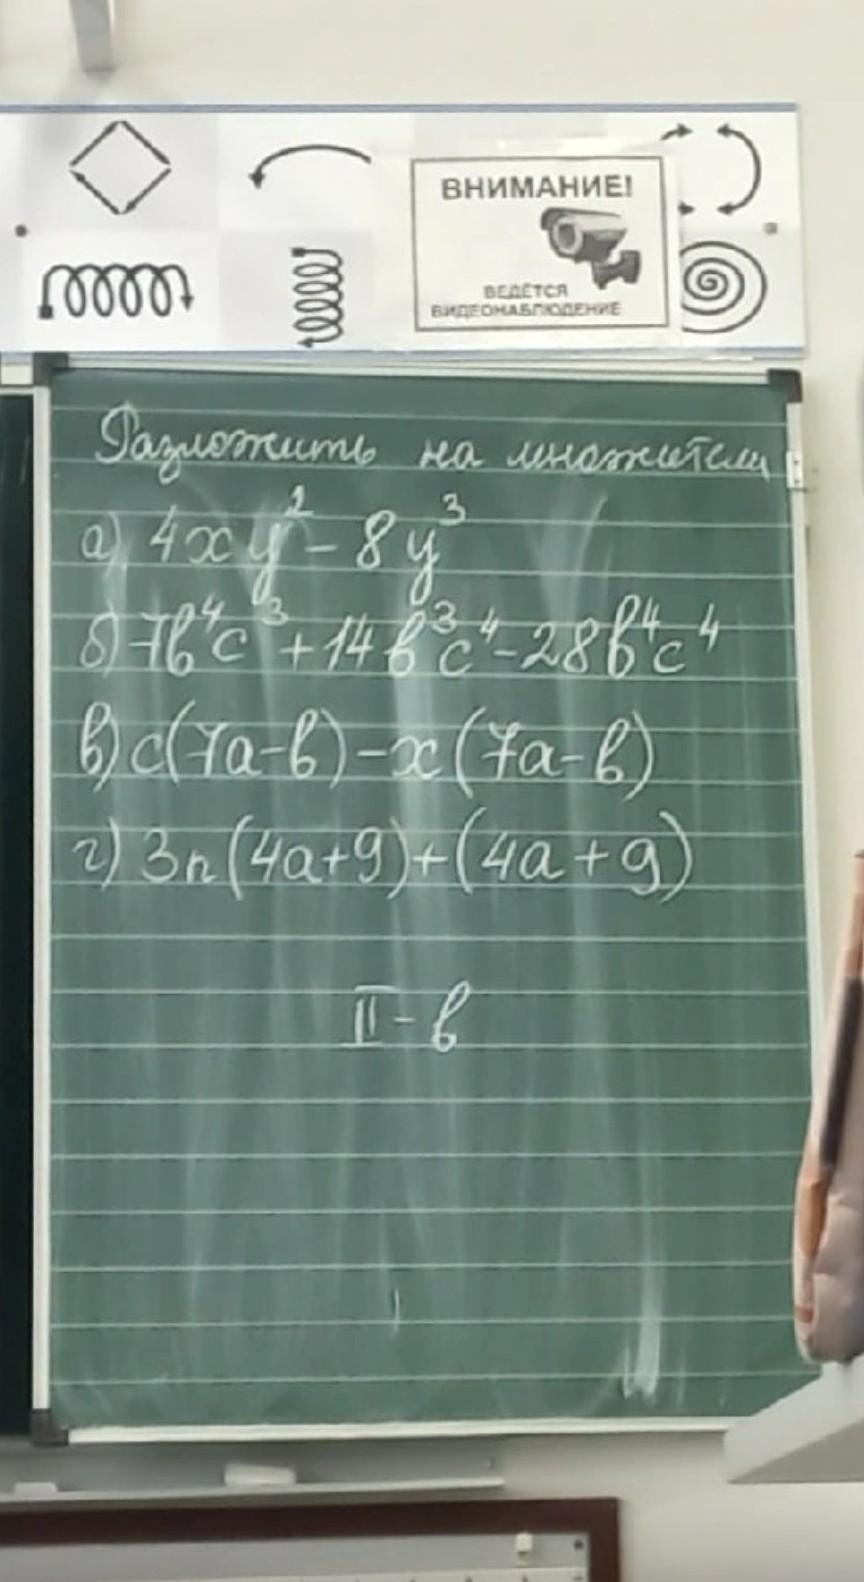 ВНИМАНИЕ!
ВЕДЁТСЯ
ВИДЕОНАБЛЮДЕНИЕ
Разложить на множители
а) 4xy² - 8y³
б) 7b⁴c³ + 14b³c⁴ - 28b⁴c⁴
в) c(7a - b) - x(7a - b)
г) 3n(4a + 9) + (4a + 9)
II - в